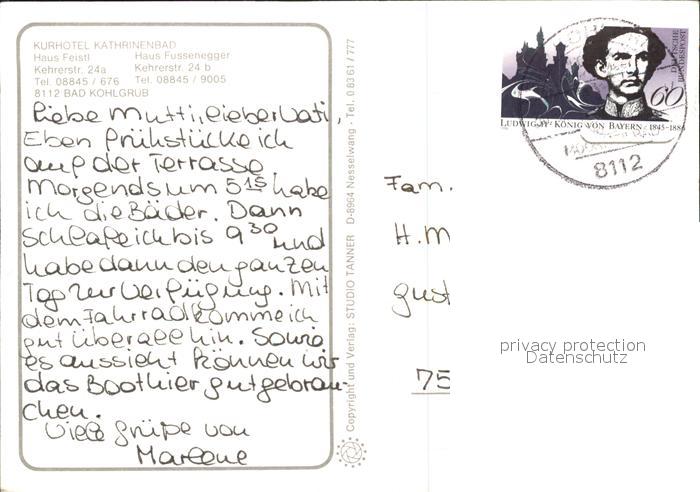 KURHOTEL KATHRINENBAD
Haus Feistl Haus Fussenegger
Kehrerstr. 24a Kehrerstr. 24 b
Tel. 08845 / 676 Tel. 08845 / 9005
8112 BAD KOHLGRUB
Liebe Mutti, lieber Vati,
Eben frühstücke ich
auf der Terrasse.
Morgends um 5 15 habe
ich die Bäder. Dann
schlafe ich bis 9 30 und
habe dann den ganzen
Tag zur Verfügung. Mit
dem Fahrrad komme ich
gut überall hin. Sowie
es aussieht können wir
das Boot hier gut gebrau-
chen.
Viele Grüße von
Marlene
Copyright und Verlag: STUDIO TANNER D-8964 Nesselwang · Tel. 08361/777
DEUTSCHE
BUNDESPOST
60
LUDWIG II. · KÖNIG VON BAYERN · 1845-1886
8112
Fam.
H. M
Gust
75
privacy protection
Datenschutz